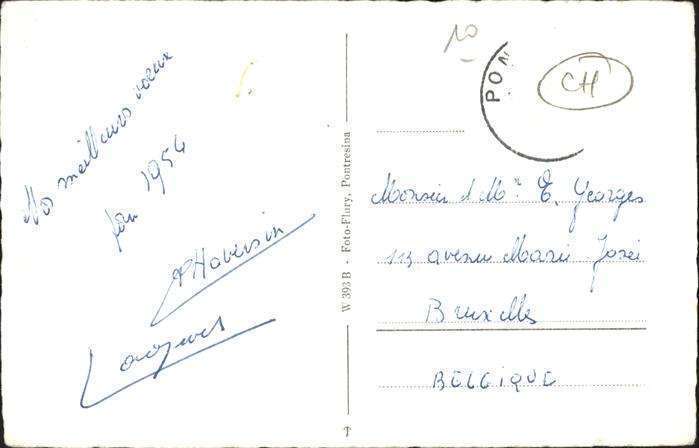 Nos meilleurs voeux
pour 1954
Jacques
W 393 B - Foto-Flury, Pontresina
10
CH
PON
Monsieur & Mme E. Georges
113 avenue Marie José
Bruxelles
BELGIQUE